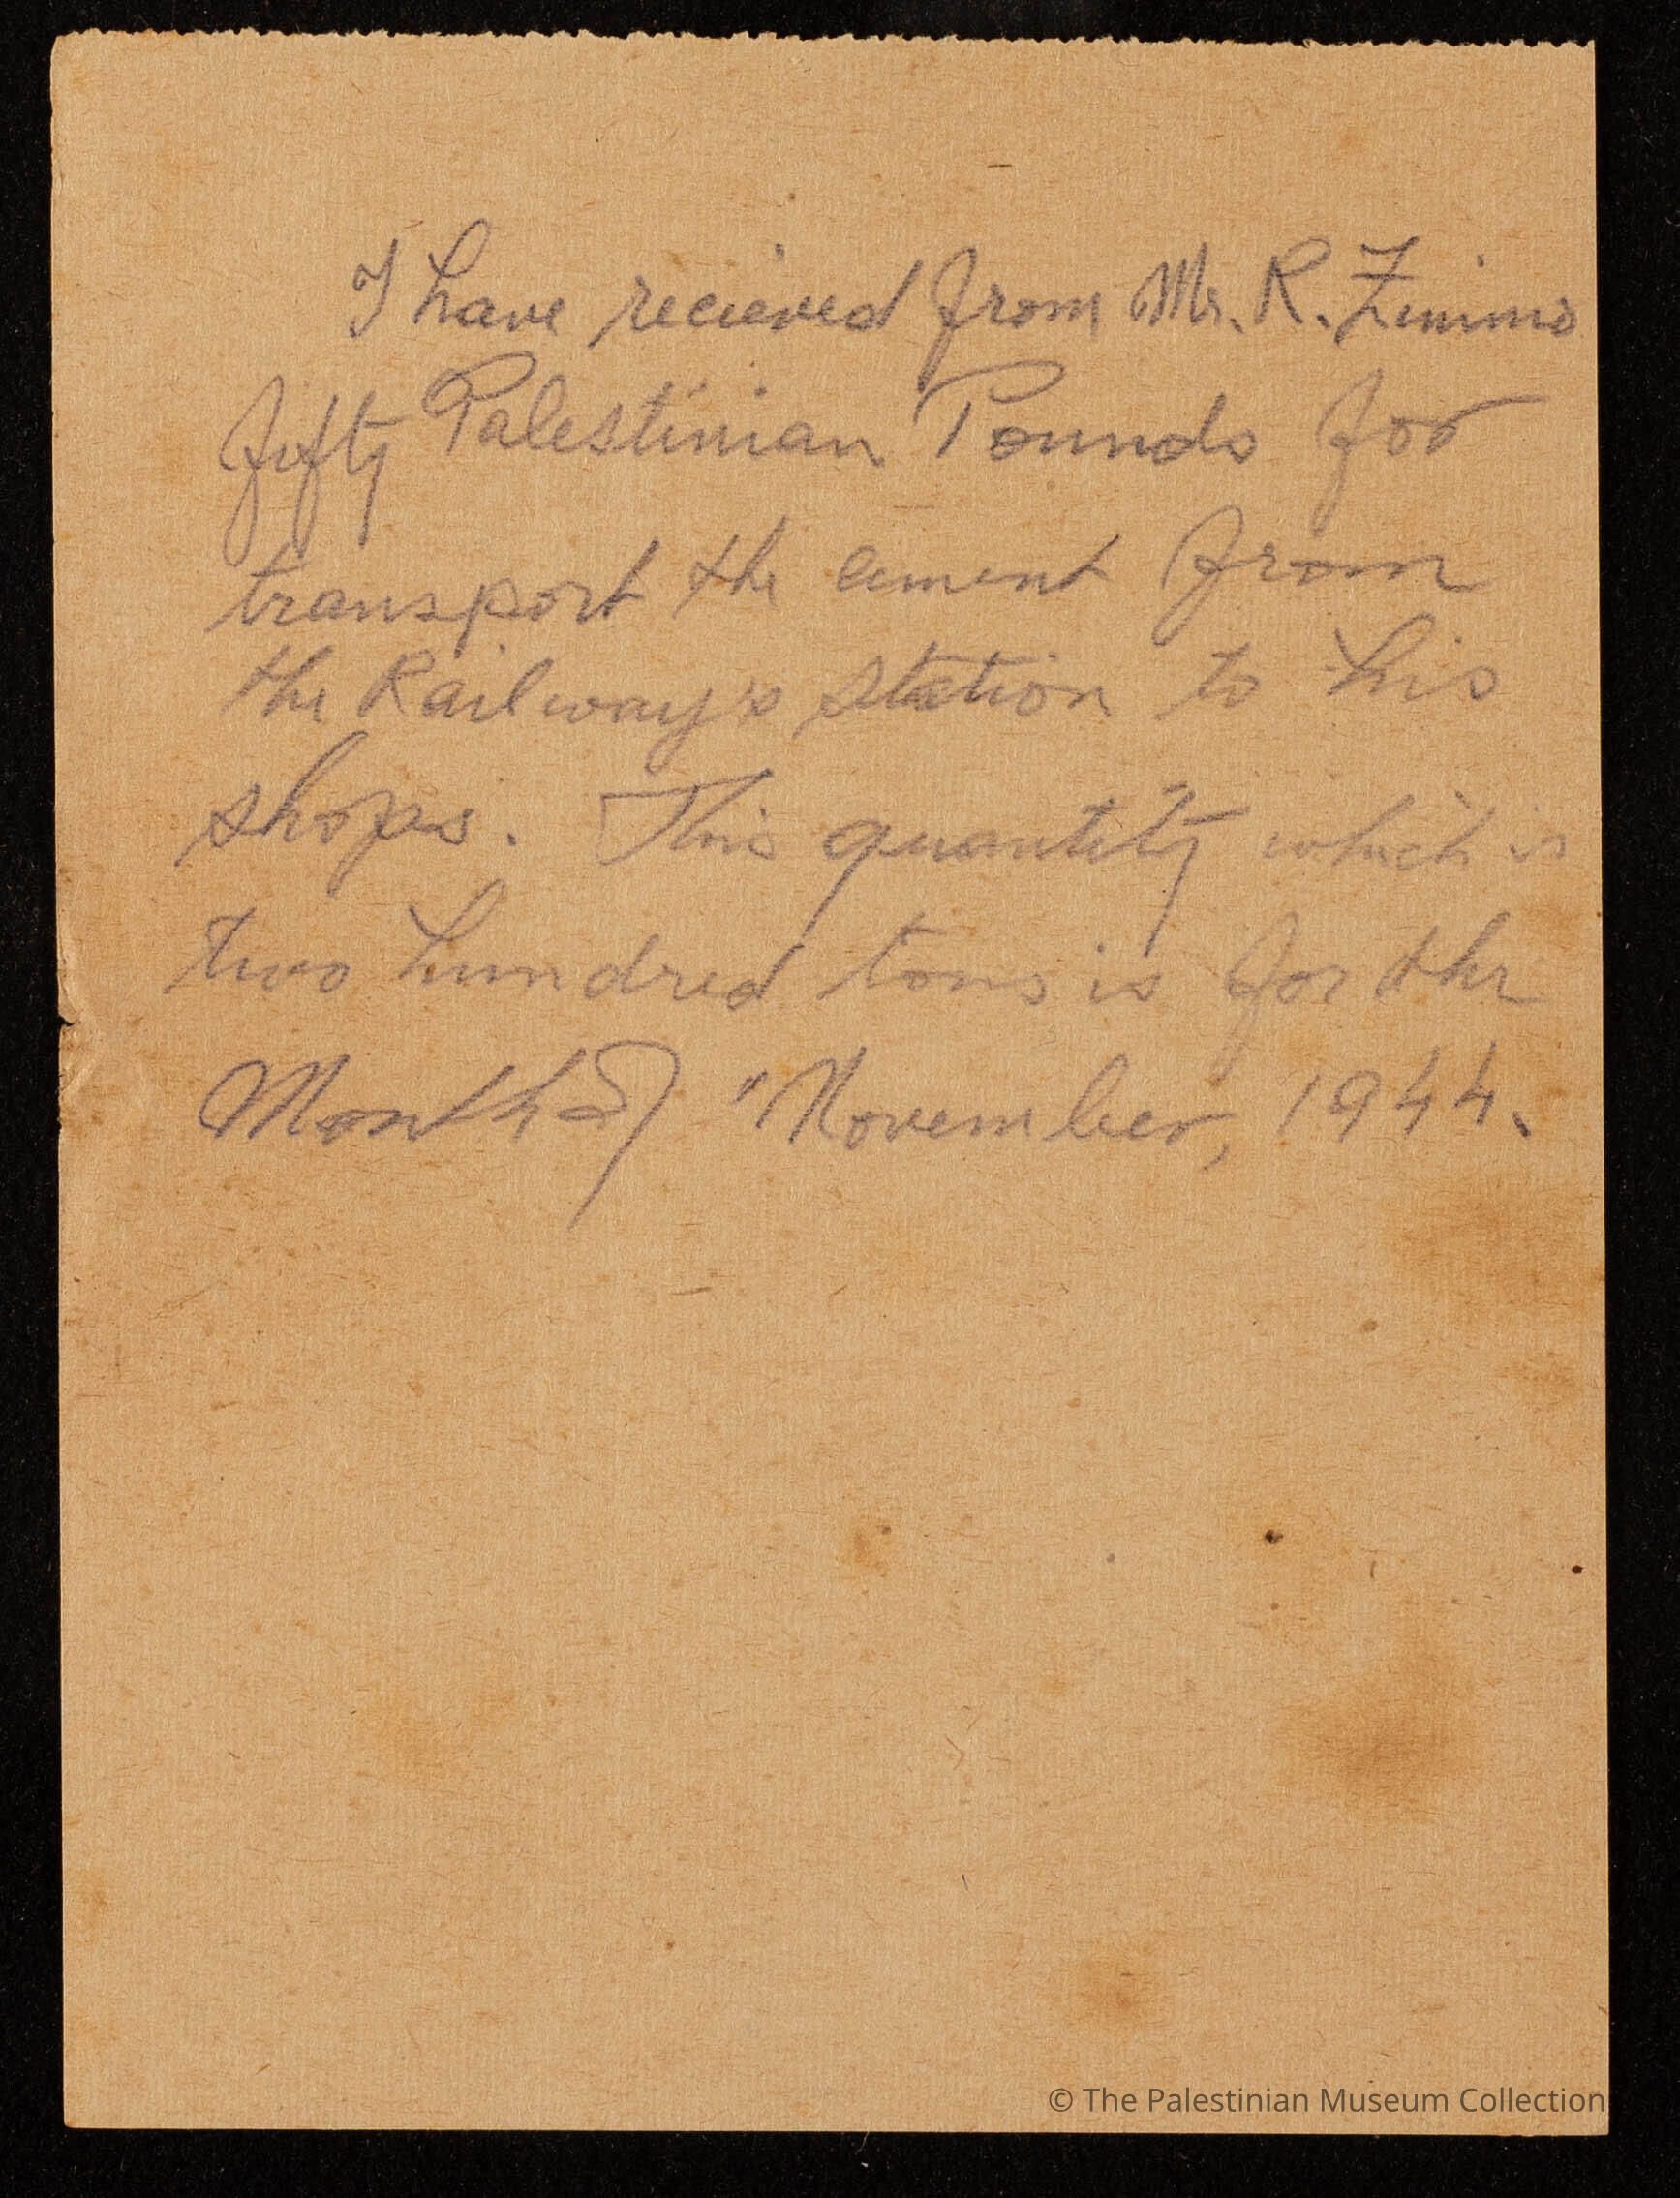 I have recieved from Mr. R.
fifty Palestinian Pounds for
transport the cement from
the Railway's station to his
shops. This quantity which is
two hundred tons is for the
Month of "November, 1944.
© The Palestinian Museum Collection